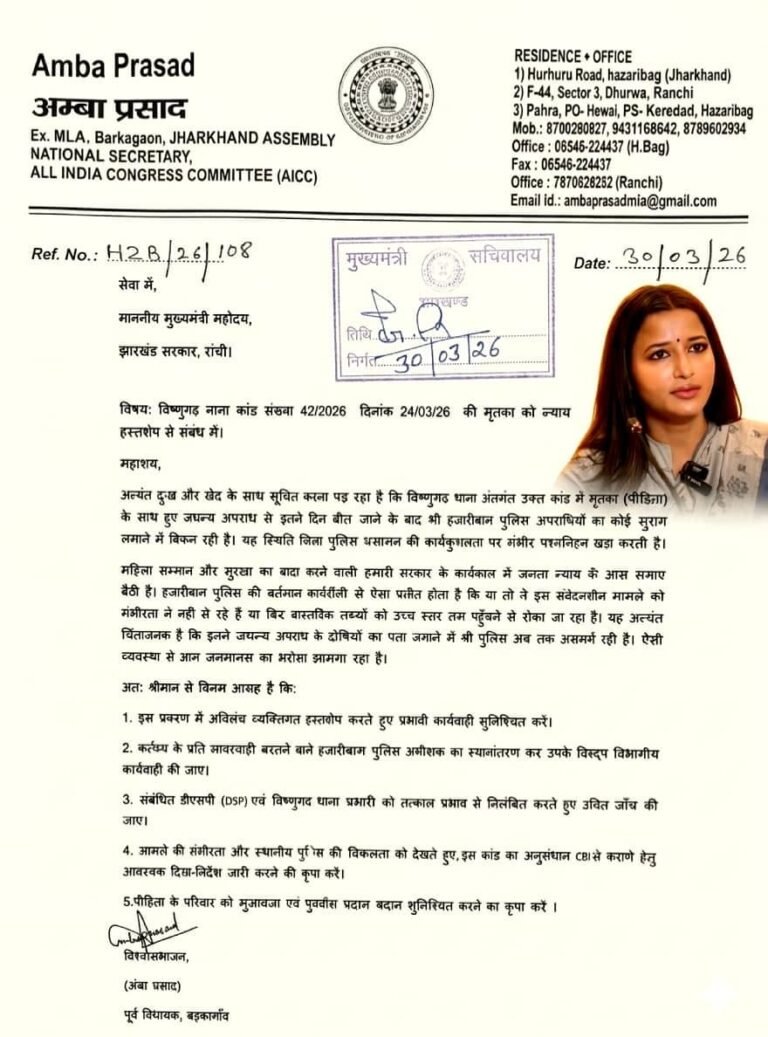 Amba Prasad
अम्बा प्रसाद
Ex. MLA, Barkagaon, JHARKHAND ASSEMBLY
NATIONAL SECRETARY,
ALL INDIA CONGRESS COMMITTEE (AICC)
RESIDENCE + OFFICE
1) Hurhuru Road, hazaribag (Jharkhand)
2) F-44, Sector 3, Dhurwa, Ranchi
3) Pahra, PO- Hewai, PS- Keredad, Hazaribag
Mob.: 8700280827, 9431168642, 8789602934
Office : 06546-224437 (H.Bag)
Fax : 06546-224437
Office : 7870626252 (Ranchi)
Email id.: ambaprasadmia@gmail.com
Ref. No.: HZB/26/108
मुख्यमंत्री सचिवालय
झारखण्ड
तिथि
निर्गत 30/03/26
Date: 30/03/26
सेवा में,
माननीय मुख्यमंत्री महोदय,
झारखंड सरकार, रांची।
विषय: विष्णुगढ़ नाना कांड संख्वा 42/2026 दिनांक 24/03/26 की मृतका को न्याय
हस्तशेप से संबंध में।
महाशय,
अत्यंत दुःख और खेद के साथ सूचित करना पड़ रहा है कि विष्णुगढ़ थाना अंतगंत उक्त कांड में मृतका (पीडिता)
के साथ हुए जघन्य अपराध से इतने दिन बीत जाने के बाद भी हजारीबान पुलिस अपराधियों का कोई सुराग
लमाने में बिफन रही है। यह स्थिति जिला पुलिस प्रसामन की कार्यकुशलता पर गंभीर पश्ननिहन खड़ा करती है।
महिला सम्मान और सुरखा का बादा करने वाली हमारी सरकार के कार्यकाल में जनता न्याय के आस समाए
बैठी है। हजारीबान पुलिस की बर्तमान कार्यर्रीली से ऐसा प्रतीत होता है कि या तो ने इस संवेदनशीन मामले को
गंभीरता ने नही से रहे हैं या बिर बास्तविक तब्यों को उच्च स्तर तम पहुँबने से रोका जा रहा है। यह अत्यंत
चिंताजनक है कि इनने जघन्य अपराध के दोषियों का पता जगाने में श्री पुलिस अब तक असमर्ग रही है। ऐसी
व्यवस्था से आन जनमानस का भरोसा झामगा रहा है।
अत: श्रीमान से विनम आसह है कि:
1. इस प्रकरण में अविलंच व्यक्तिगत हस्तशोप करते हुए प्रभावी कार्यवाही सुनिश्चित करें।
2. कर्तथ्य के प्रति सावरवाही बरतने बाने हजारीबाम पुलिस अभीशक का स्यानांतरण कर उपके विस्द्प विभागीय
कार्यवाही की जाए।
3. संबंधित डीएसपी (DSP) एवं विष्णुगद थाना प्रभारी को तत्काल प्रभाव से निलंबित करते हुए उवित जाँच की
जाए।
4. आमले की संभीरता और स्थानीय की विकलता को देखते हुए, इस कांड का अनुसंधान CBI से कराणे हेतु
आवरवक दिशा-निर्देश जारी करने की कृपा करें।
5.पीहिता के परिवार को मुआवजा एवं पुववीस प्रदान बदान शुनिश्यित करने का कृपा करें ।
विश्वासभाजन,
(अंबा प्रसाद)
पूर्व विधायक, बड़कागाँव